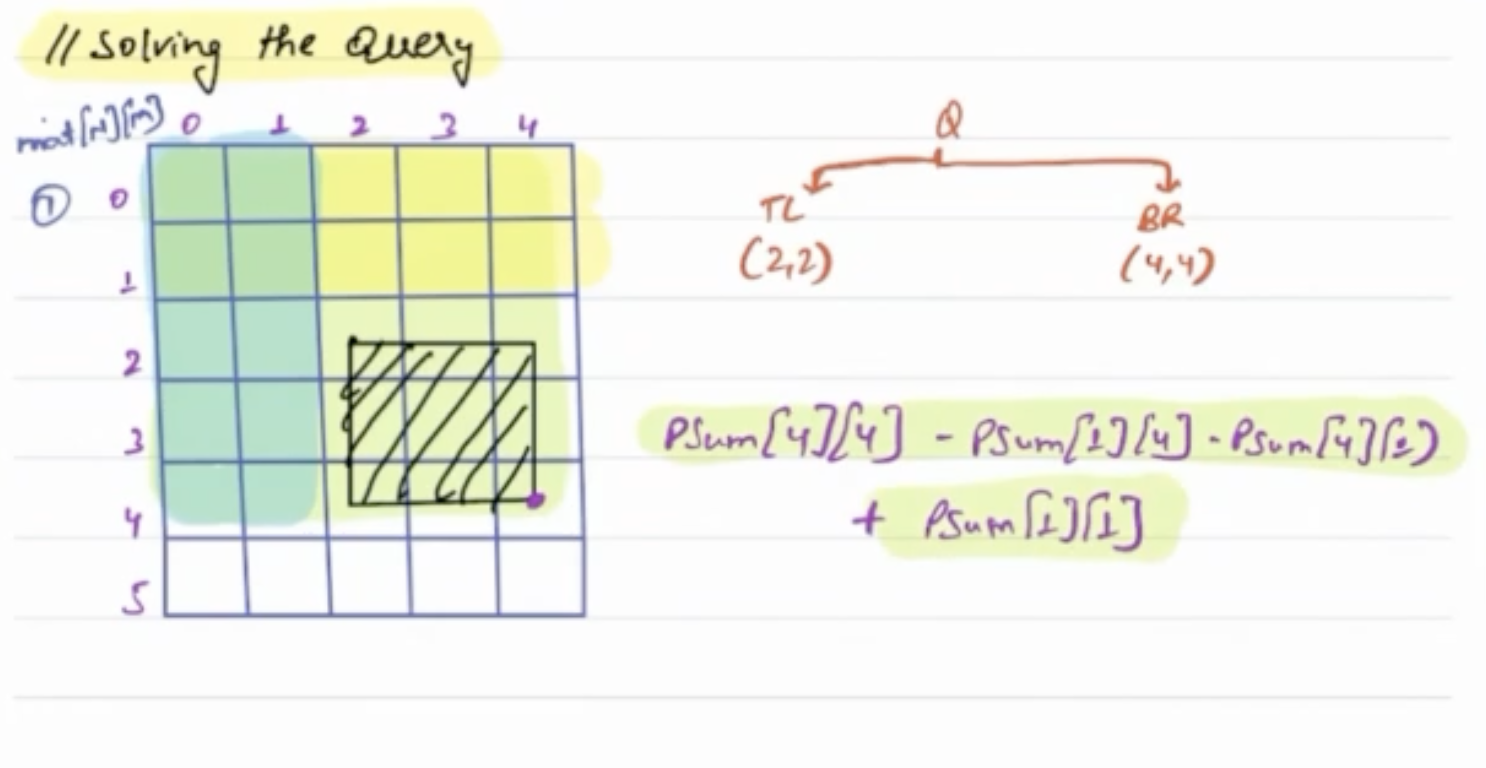 // Solving the Query
mat[N][M] 0 1 2 3 4
① 0
1
2
3
4
5
Q
TL BR
(2,2) (4,4)
PSum[4][4] - PSum[1][4] - PSum[4][1]
+ PSum[1][1]